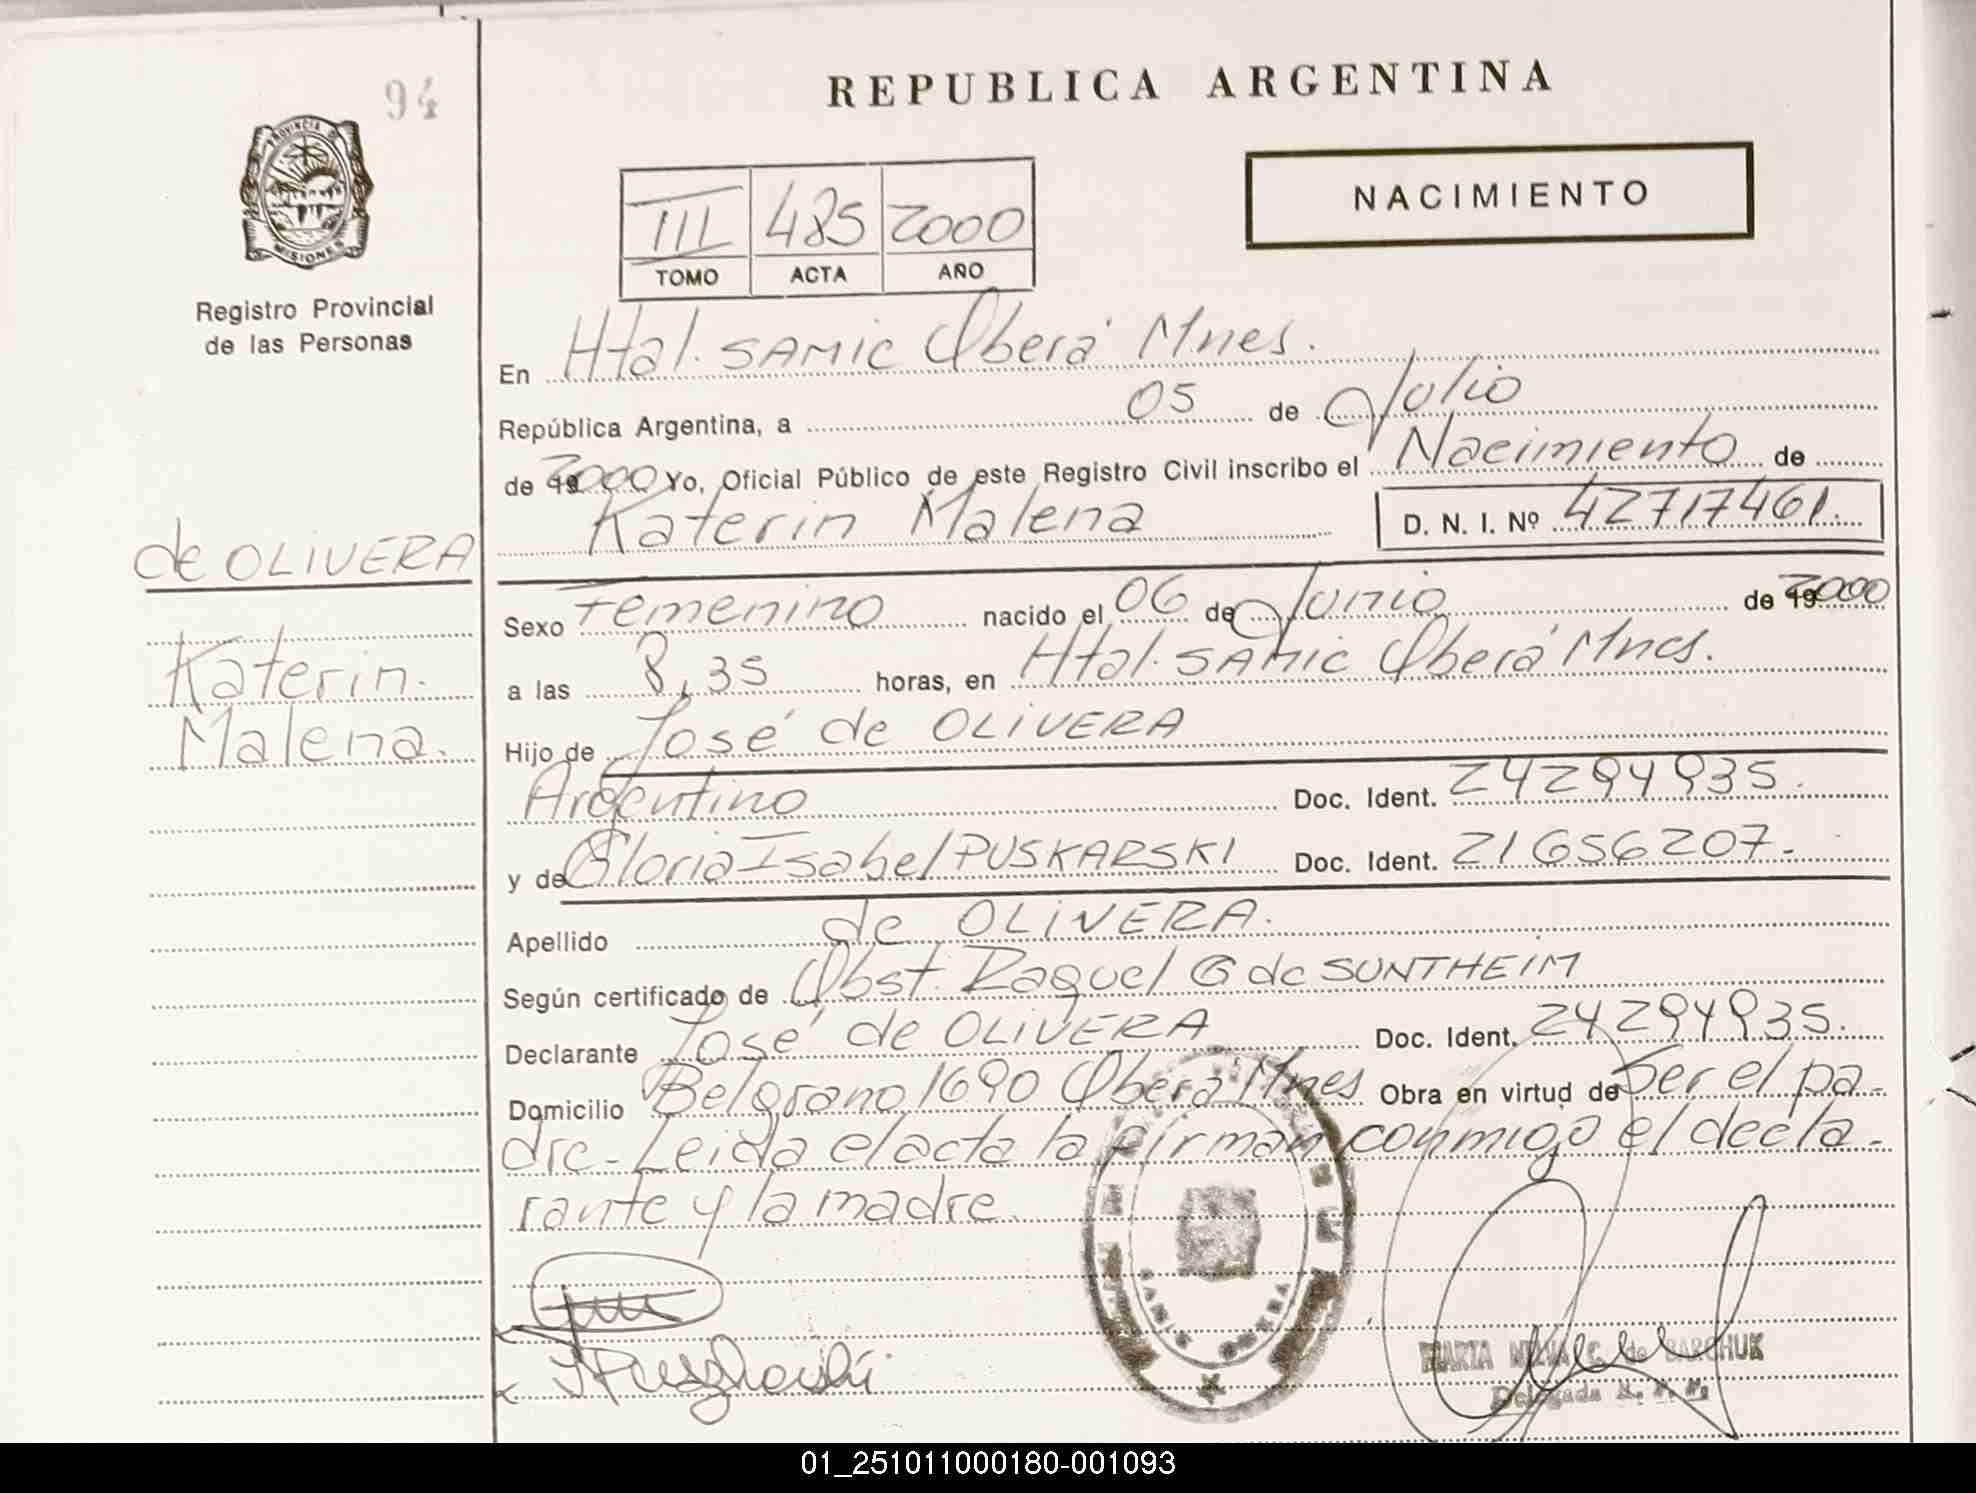 94
PROVINCIA D
MISIONES
Registro Provincial
de las Personas
de OLIVERA
Katerin.
Malena.
REPUBLICA ARGENTINA
NACIMIENTO
III 485 2000
TOMO ACTA AÑO
En Htal. SAMIC Oberá Mnes.
República Argentina, a 05 de Julio
de 192000 Yo, Oficial Público de este Registro Civil inscribo el Nacimiento de
Katerin Malena D. N. I. Nº 42717461.
Sexo Femenino nacido el 06 de Junio de 192000
a las 8,35 horas, en Htal. SAMIC Oberá Mnes.
Hijo de José de OLIVERA
Argentino Doc. Ident. 24294935.
y de Gloria Isabel PUSKARSKI Doc. Ident. 21656207.-
Apellido de OLIVERA.
Según certificado de Obst. Raquel G de SUNTHEIM
Declarante José de OLIVERA Doc. Ident. 24294935.
Domicilio Belgrano 1690 Oberá Mnes Obra en virtud de Ser el pa-
dre- Leida el acta la firman conmigo el decla-
rante y la madre.
MARTA C. de BARCHUK
Delegada
01_251011000180-001093